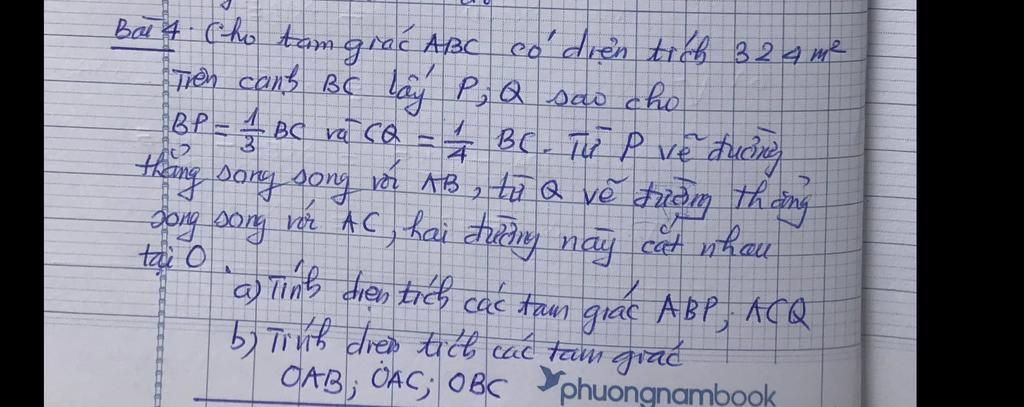 Bài 4. Cho tam giác ABC có diện tích 324 m²
Trên cạnh BC lấy P; Q sao cho
BP = 1/3 BC và CQ = 1/4 BC. Từ P vẽ đường
thẳng song song với AB, từ Q vẽ đường thẳng
song song với AC, hai đường này cắt nhau
tại O.
a) Tính diện tích các tam giác ABP; ACQ
b) Tính diện tích các tam giác
OAB; OAC; OBC
phuongnambook